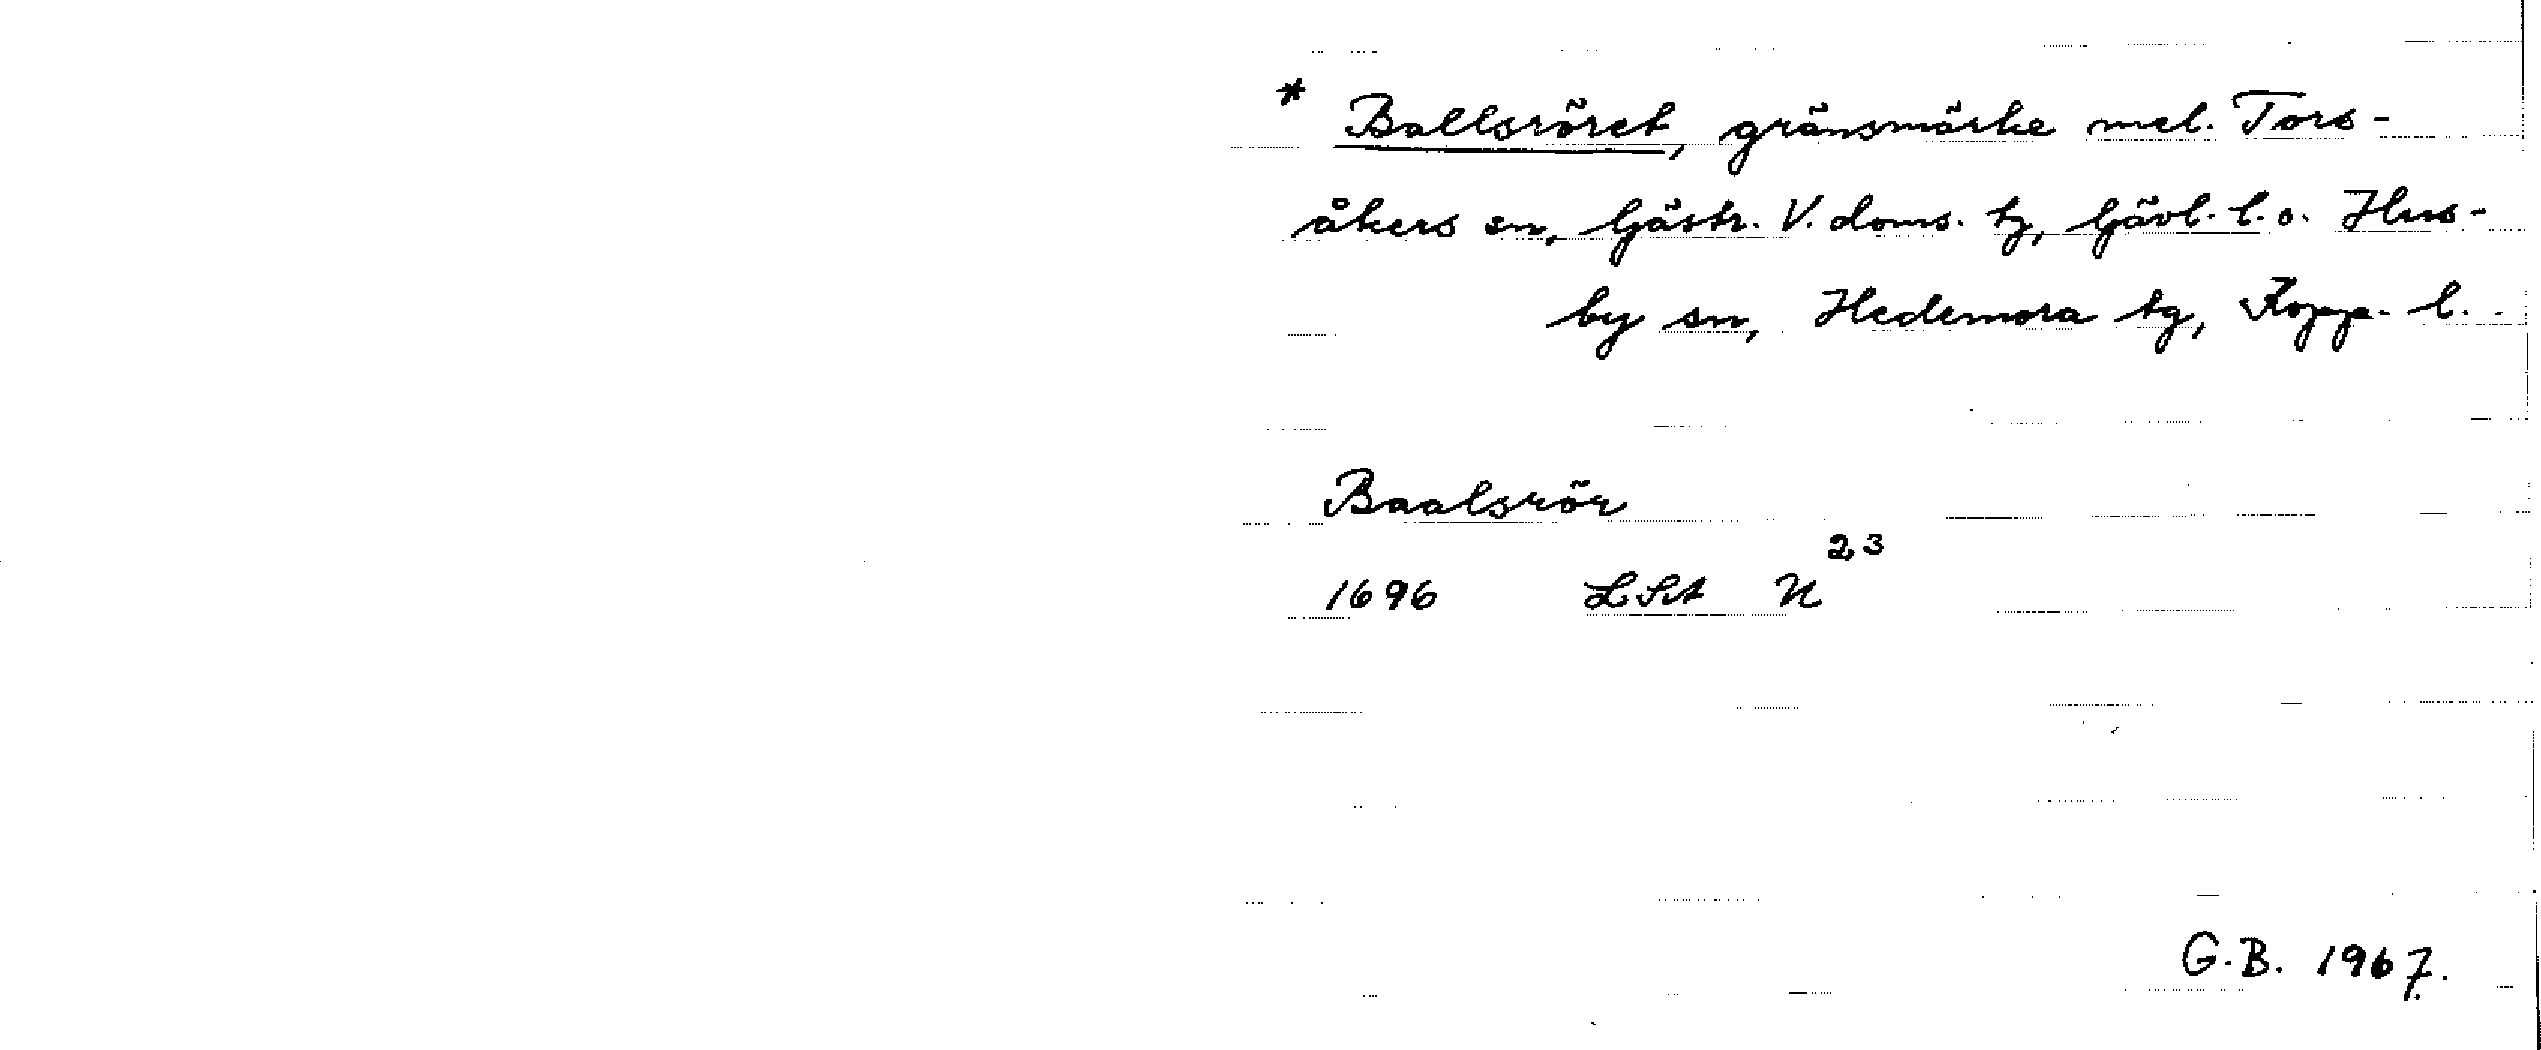 * Ballsröret, gränsmärke mel. Tors-
åkers sn, Gästr. V. doms. tg, Gävl. l. o. Hus-
by sn, Hedemora tg, Kopp. l.
Baalsrör
1696 LSA N 23
G.B. 1967.